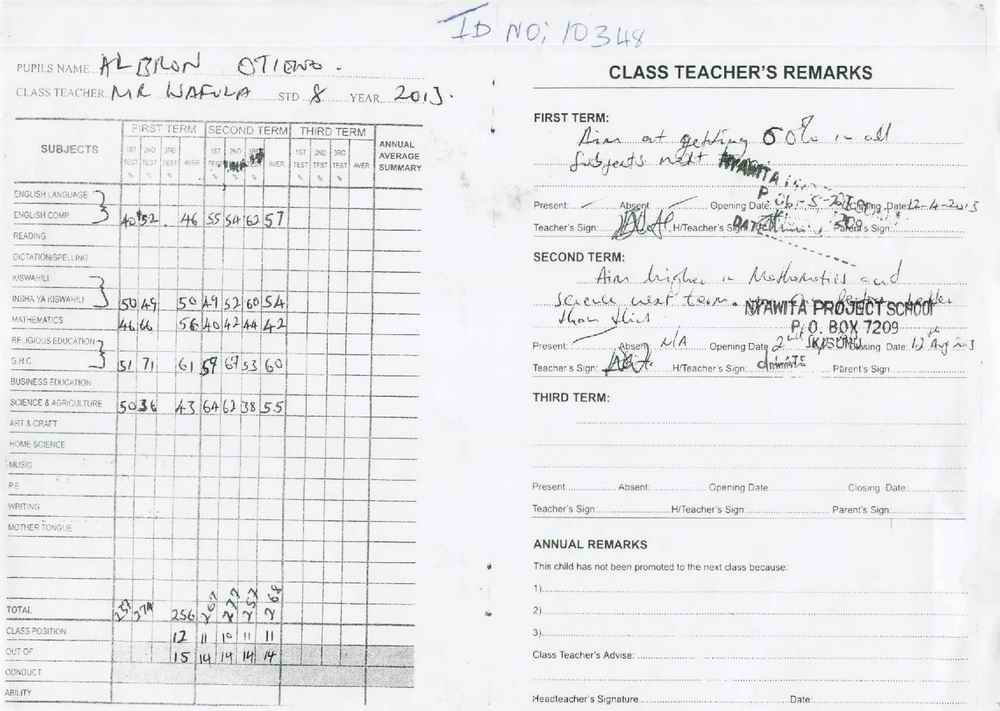 ID NO: 10348
PUPILS NAME ALBRON OTIENO.
CLASS TEACHER. MR WAFULA STD 8 YEAR 2013.
SUBJECTS FIRST TERM SECOND TERM THIRD TERM ANNUAL AVERAGE SUMMARY
1ST TEST % 2ND TEST % 3RD TEST % AVER 1ST 2ND AVER 1ST TEST % 2ND TEST % 3RD TEST % AVER
ENGLISH LANGUAGE
ENGLISH COMP 40 52 46 55 54 62 57
READING
DICTATION/SPELLING
KISWAHILI
INSHA YA KISWAHILI 50 49 50 49 52 60 54
MATHEMATICS 46 66 56 40 42 44 42
RELIGIOUS EDUCATION
G.H.C. 51 71 61 59 67 53 60
BUSINESS EDUCATION
SCIENCE & AGRICULTURE 50 36 43 64 62 38 55
ART & CRAFT
HOME SCIENCE
MUSIC
P.E
WRITING
MOTHER TONGUE
TOTAL 237 274 256 267 277 257 268
CLASS POSITION 12 11 10 11 11
OUT OF 15 14 14 14 14
CONDUCT
ABILITY
CLASS TEACHER'S REMARKS
FIRST TERM:
Aim at getting 60% in all
Subjects next
Present: Absent Opening Date Closing Date 12-4-2013
Teacher's Sign: H/Teacher's Sign Parent's Sign
SECOND TERM:
Aim higher in Mathematics and
Science next term.
than this
NYAWITA PROJECT SCHOOL
P.O. BOX 7209
KISUMU
Present: Absent N/A Opening Date 2nd Closing Date: Aug
Teacher's Sign: H/Teacher's Sign: Parent's Sign
THIRD TERM:
Present Absent: Opening Date Closing Date:
Teacher's Sign: H/Teacher's Sign Parent's Sign:
ANNUAL REMARKS
This child has not been promoted to the next class because:
1)
2)
3)
Class Teacher's Advise:
Headteacher's Signature Date: